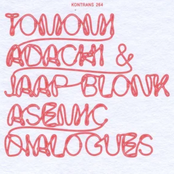 KONTRANS 264
TOMOMI
ADACHI &
JAAP BLONK
ASEMIC
DIALOGUES